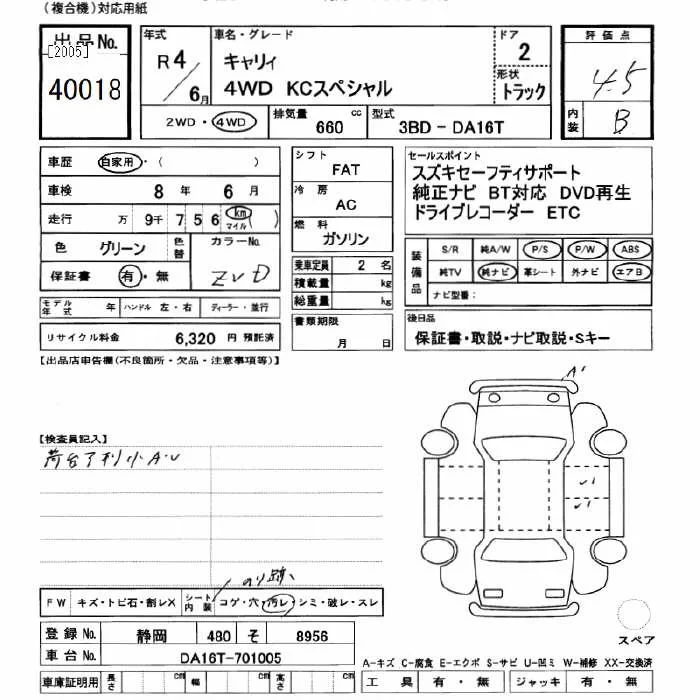 (複合機)対応用紙
出品No.
[2005]
40018
年式
R 4
6月
車名・グレード
キャリィ
4WD KCスペシャル
ドア
2
形状
トラック
評価点
4.5
内装
B
2WD・4WD
排気量 660 cc
型式 3BD - DA16T
車歴 自家用・( )
車検 8 年 6 月
走行 万 9千 7 5 6 km マイル
色 グリーン 色替
カラーNo.
ZVD
保証書 有・無
モデル年式 年 ハンドル 左・右 ディーラー・並行
リサイクル料金 6,320 円 預託済
シフト
FAT
冷房
AC
燃料
ガソリン
乗車定員 2 名
積載量 kg
総重量 kg
書類期限
月 日
セールスポイント
スズキセーフティサポート
純正ナビ BT対応 DVD再生
ドライブレコーダー ETC
装備品
S/R 純A/W P/S P/W ABS
純TV 純ナビ 革シート 外ナビ エアB
ナビ型番:
後日品
保証書・取説・ナビ取説・Sキー
【出品店申告欄(不良箇所・欠品・注意事項等)】
【検査員記入】
荷台アオリ小A・U
A1
F W キズ・トビ石・割レX シート内装 コゲ・穴・汚レ・シミ・破レ・スレ
登録No. 静岡 480 そ 8956
車台No. DA16T-701005
車庫証明用 長さ cm 幅 cm 高さ cm
スペア
A-キズ C-腐食 E-エクボ S-サビ U-凹ミ W-補修 XX-交換済
工具 有・無 ジャッキ 有・無